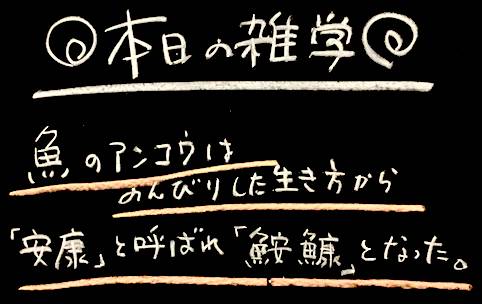 本日の雑学
魚のアンコウは
のんびりした生き方から
「安康」と呼ばれ「鮟鱇」となった。